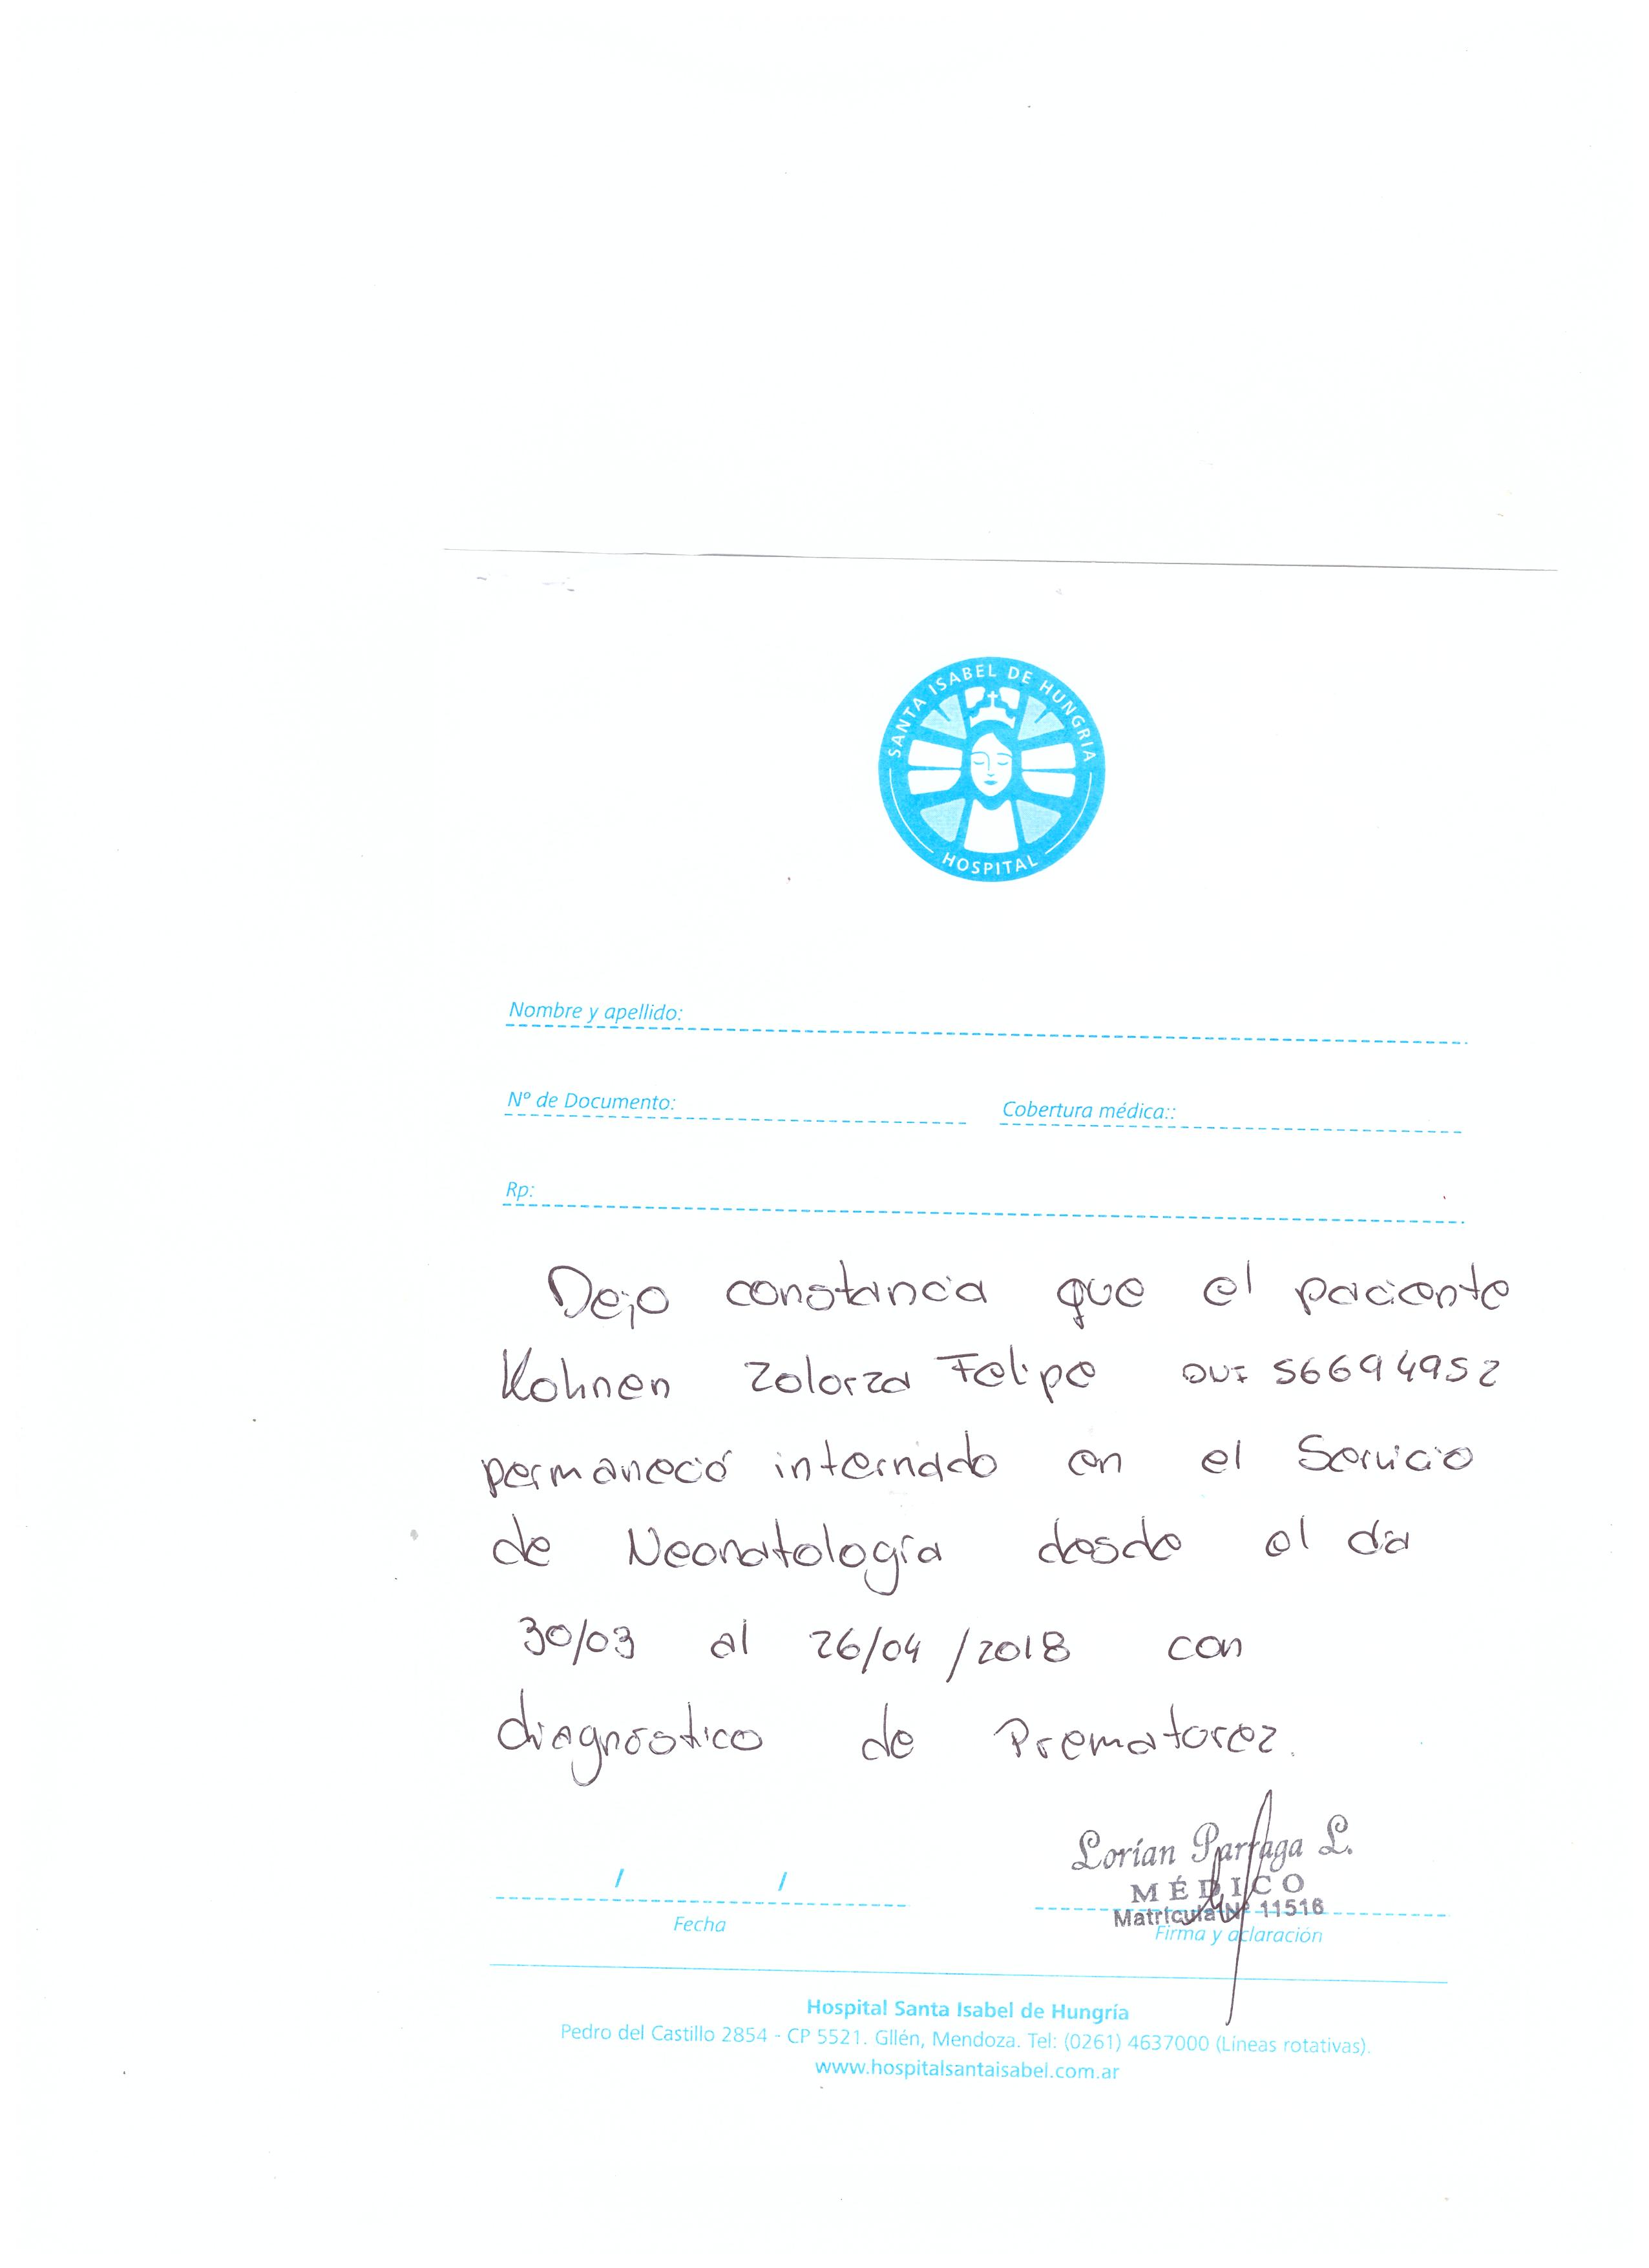 SANTA ISABEL DE HUNGRIA
HOSPITAL
Nombre y apellido:
Nº de Documento: Cobertura médica::
Rp:
Dejo constancia que el paciente
Kohnen Zolorza Felipe DNI 56694952
permaneció internado en el Servicio
de Neonatología desde el día
30/03 al 26/04/2018 con
diagnóstico de Prematurez.
Lorían Parraga L.
MÉDICO
Matrícula Nº 11516
/ /
Fecha Firma y aclaración
Hospital Santa Isabel de Hungría
Pedro del Castillo 2854 - CP 5521. Gllén, Mendoza. Tel: (0261) 4637000 (Líneas rotativas).
www.hospitalsantaisabel.com.ar